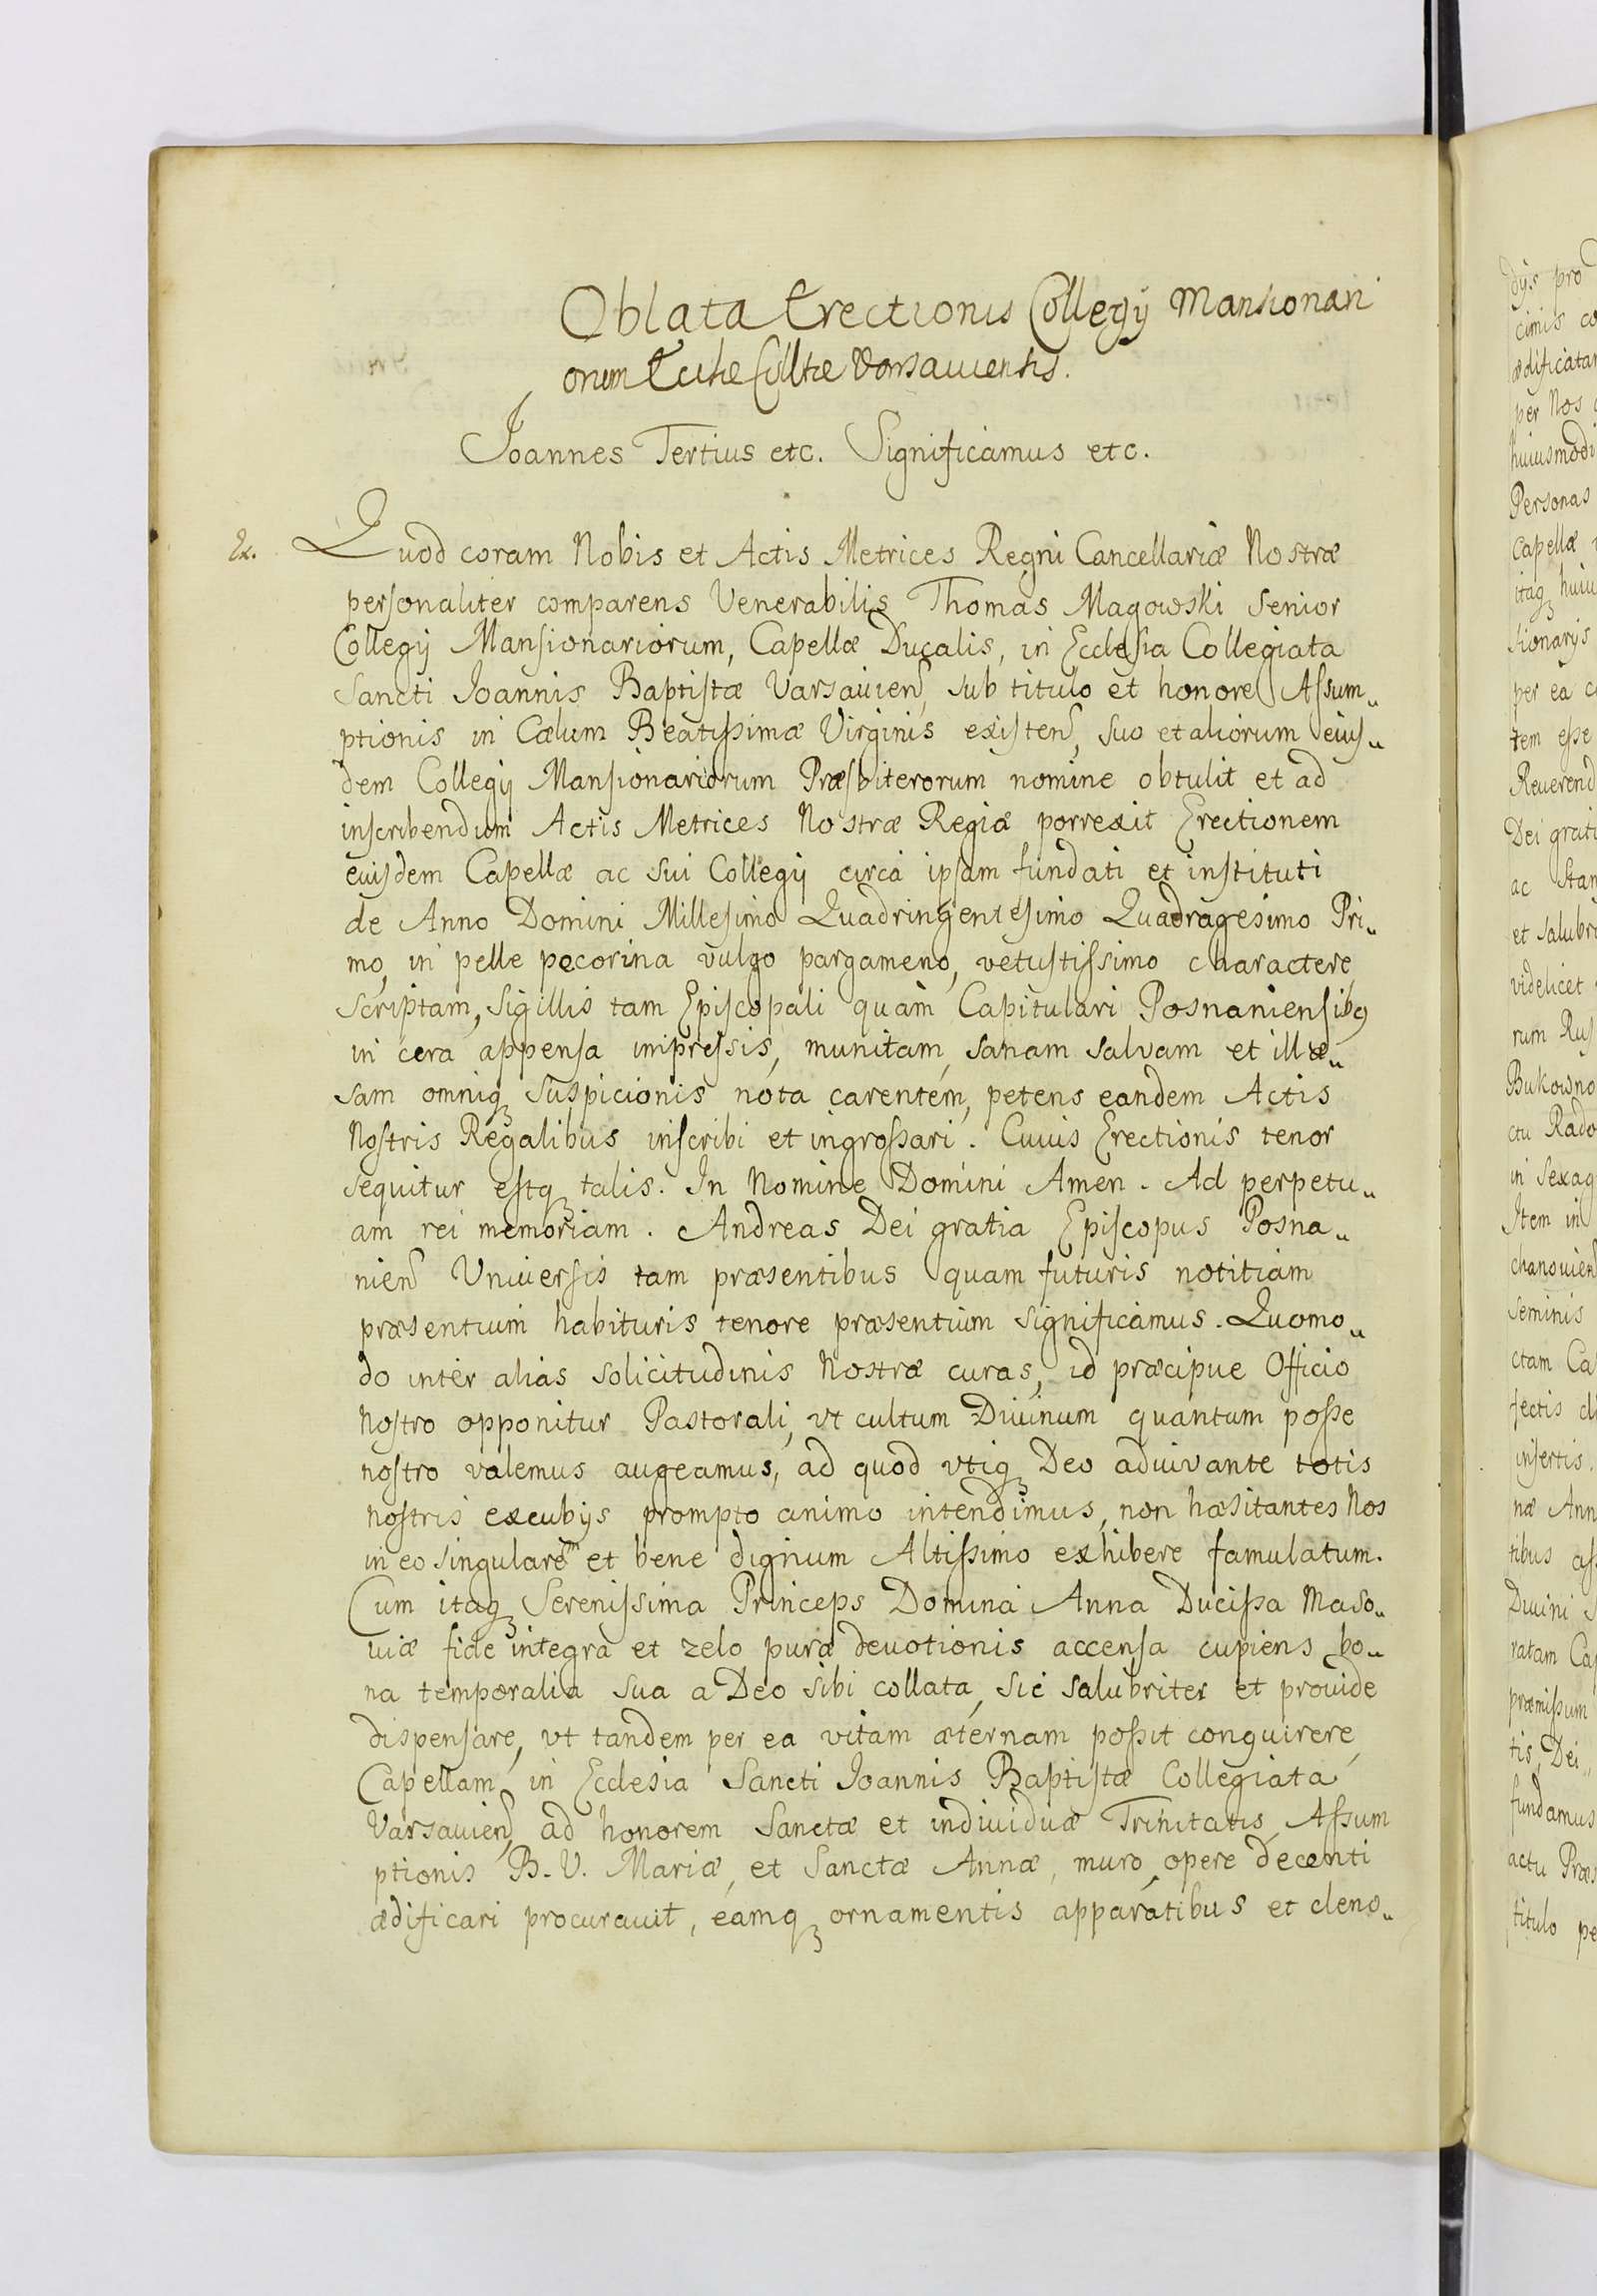 Oblata Erectionis Collegij Mansionari
orum Eccłae Collтae Varsauiensis.
Joannes Tertius etc. Significamus etc.
Ex. Quod coram Nobis et Actis Metrices Regni Cancellariæ Nostræ
personaliter comparens Venerabilis Thomas Magowski Senior
Collegij Mansionariorum, Capellæ Ducalis, in Ecclesia Collegiata
Sancti Joannis Baptistæ Varsauien, sub titulo et honore Assum„
ptionis in Cœlum Beatissimæ Virginis existen, suo et aliorum eius„
dem Collegij Mansionariorum Præsbiterorum nomine obtulit et ad
inscribendum Actis Metrices Nostræ Regiæ porrexit Erectionem
euisdem Capellæ ac sui Collegij circa ipsam fundati et instituti
de Anno Domini Millesimo Quadringentesimo Quadragesimo Pri„
mo, in pelle pecorina vulgo pargameno, vetustissimo charactere
scriptam, Sigillis tam Episcopali quàm Capitulari Posnaniensibq
in cera appensa impressis, munitam, sanam salvam et illæ„
sam omniq suspicionis nota carentem, petens eandem Actis
Nostris Regalibus inscribi et ingrossari. Cuius Erectionis tenor
sequitur estq talis. In Nomine Domini Amen. Ad perpetu„
am rei memoriam. Andreas Dei gratia Episcopus Posna„
nien Vniuersis tam præsentibus quam futuris notitiam
præsentium habituris tenore præsentium significamus. Quomo„
do inter alias solicitudinis Nostræ curas, id præcipue Officio
Nostro opponitur Pastorali, vt cultum Diuinum quantum posse
nostro valemus augeamus, ad quod vtiq Deo adiuvante totis
nostris excubijs prompto animo intendimus, non hæsitantes Nos
in eo singularem et bene dignum Altissimo exhibere famulatum.
Cum itaq Serenissima Princeps Domina Anna Ducissa Maso„
uiæ fide integrà et zelo puræ deuotionis accensa cupiens bo„
na temporalia sua a Deo sibi collata, sic salubriter et prouide
dispensare, vt tandem per ea vitam æternam possit conquirere,
Capellam, in Ecclesia Sancti Joannis Baptistæ Collegiata
Varsauien, ad honorem Sanctæ et indiuiduæ Trinitatis, Assum
ptionis B. V. Mariæ, et Sanctæ Annæ, muro, opere decenti
ædificari procurauit, eamq ornamentis apparatibus et cleno„
dijs pro
cimis co
ædificatam
per Nos
huiusmodi
Personas
Capellæ
itaq huiu
sionarijs
per ea c
tem esse
Reuerend
Dei grati
ac Stan
et salubri
videlicet
rum Rus
Bukowno
ctu Rado
in Sexag
Item in
chanouien
seminis
ctam Ca
fectis
insertis.
næ Ann
tibus ass
Diuini
ratam Cap
præmissum
tis, Dei
fundamus
actu Præs
titulo pe